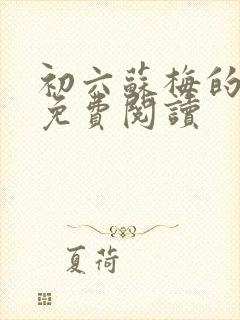 初六蘇梅的
免費閱讀
夏荷